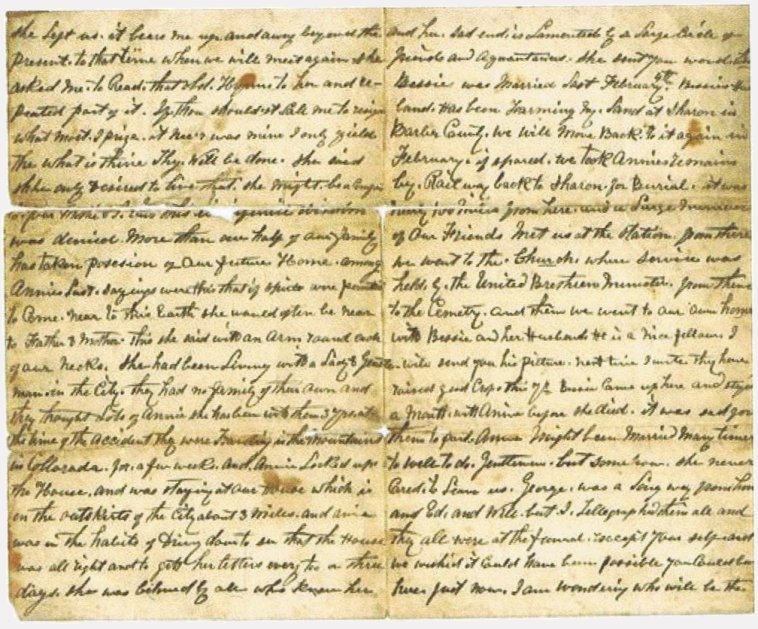 she left us. it bears me up and away beyond the
Present. to that time when we will meet again she
asked me to Read. that old. Hymn to her and re-
peated part of it. If thou shouldst Call me to resign
what most I prize. it neer was mine I only yield
the what is thine Thy. Will be done. She said
she only desired to live that. she might. be a

was denied. More than one half of our family
has taken Posesion of our future Home. among
Annies Last. sayings were this that if spirits are permited
to Come. near to this Earth she would often be near
to Father & Mother. this she said with an Arm. round each
of our necks. She had been Living with a Lady & Gentle-
man in the City. they had no family of their own and
they thought Lots of Annie she has been with them 3 years at
the time of the accident they were in the Mountains
in Collorada. for. a few weeks. and. Annie Locked up
the House. and was staying at our House which is
on the outskirts of the City about 3 Miles. and Annie
was in the habits of Driving down to see that the House
was all right and to get her letters every two or three
days. she was beloved by all who knew her
and her. sad end. is Lamented by a Large Circle of
friends and Aquantances. She sent you word that
Bessie was Married Last February. Bessies Hus
band. Has been Farming My. Land at Sharon in
Barber County. we will Move Back. to it again in
February. if spared. we took Annies remains
by. Rail way back to Sharon. for Burial. it was
 Miles from here. and a Large Number
of our Friends Met us at the Station. from there
we went to the. Church. where service was
held. by. the United Brethren Minister. from there
to the Cemetry. and then we went to our own home
with Bessie and her Husband. He is a Nice fellow. I
will send you his picture. next time I write they have
raised good Crops this yr. Bessie Came up here and stayed
a Month. with Annie before she died. it was sad for
them to part. Annie Might been Married Many times
to well to do. Gentlemen. but some how. she never
Cared. to Leave us. George. was a Long way from home
and Ed. and Will. but I. Tellegraphed them all and
they all were at the funeral. except your self and
we wished it Could Have been possible you Could been
here just now. I am wondering who will be the